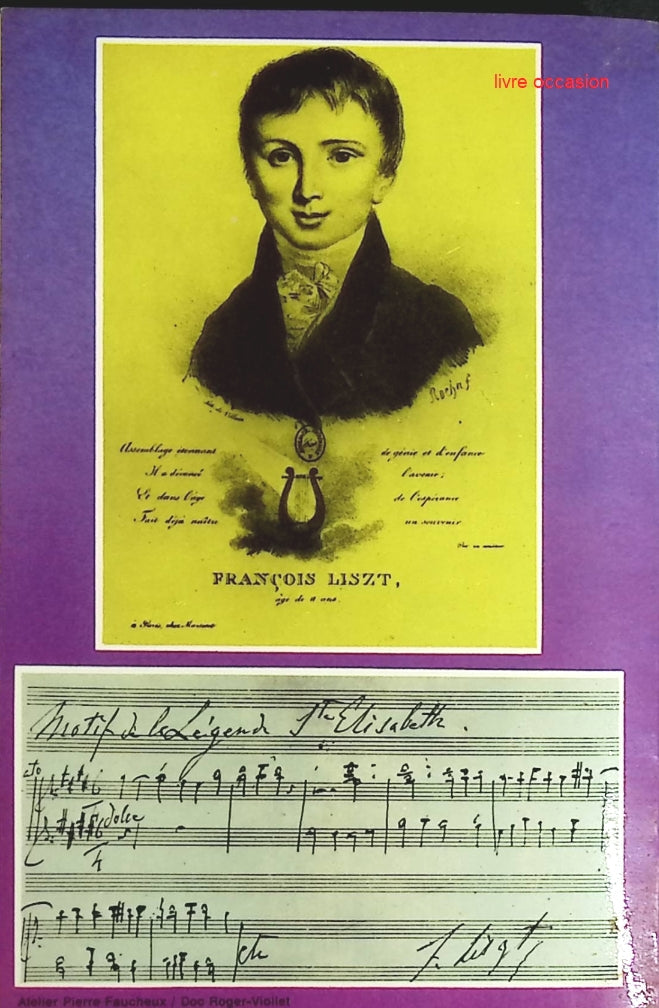 livre occasion
Rochas
Lith. de Villain
Assemblage étonnant de génie et d'enfance
Il a dévancé l'avenir;
Et dans l'âge de l'espérance
Fait déjà naître un souvenir
FRANÇOIS LISZT,
âgé de 11 ans.
à Paris, chez
Motif de la Légende Ste Elisabeth.
dolce
etc F. Liszt
Atelier Pierre Faucheux / Doc Roger-Viollet